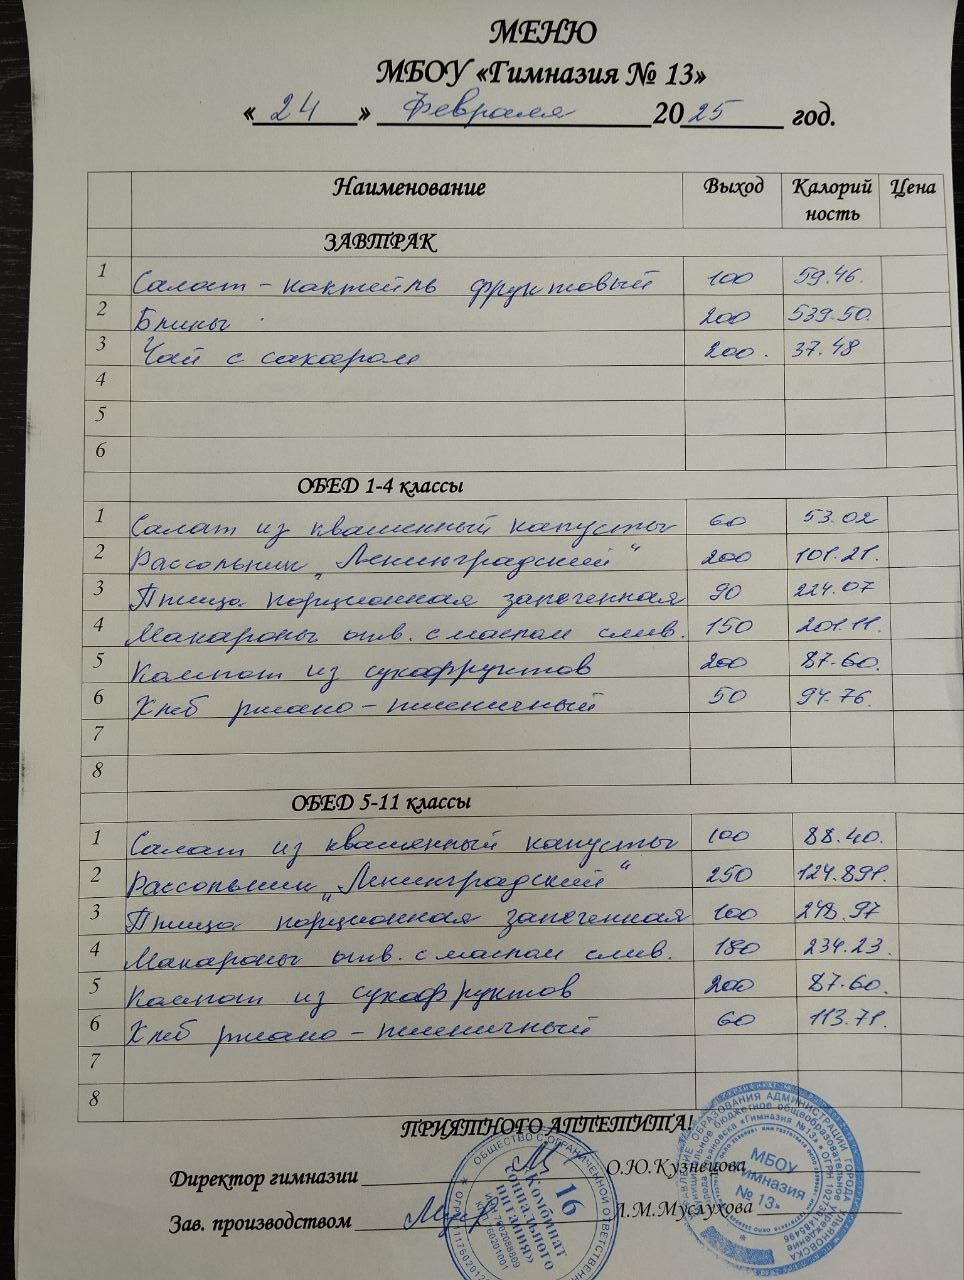 МЕНЮ
МБОУ «Гимназия № 13»
« 24 » Февраля 2025 год.
Наименование Выход Калорий ность Цена
ЗАВТРАК
1 Салат - коктейль фруктовый 100 59.46.
2 Блины 200 539.50.
3 Чай с сахаром 200. 37.48
4
5
6
ОБЕД 1-4 классы
1 Салат из квашенный капусты 60 53.02
2 Рассольник „Ленинградский“ 200 101.21.
3 Птица порционная запеченная 90 224.07
4 Макароны отв. с маслом слив. 150 201.11.
5 Компот из сухофруктов 200 87.60.
6 Хлеб ржано-пшеничный 50 94.76.
7
8
ОБЕД 5-11 классы
1 Салат из квашенный капусты 100 88.40.
2 Рассольник „Ленинградский“ 250 124.891.
3 Птица порционная запеченная 100 248.97
4 Макароны отв. с маслом слив. 180 234.23.
5 Компот из сухофруктов 200 87.60.
6 Хлеб ржано-пшеничный 60 113.71.
7
8
ПРИЯТНОГО АППЕТИТА!
Директор гимназии О.Ю.Кузнецова
Зав. производством Л.М.Муслухова
ОБЩЕСТВО С ОГРАНИЧЕННОЙ ОТВЕТСТВЕННО
16
«Комбинат
социального
питания»
МБОУ
«Гимназия
№ 13»